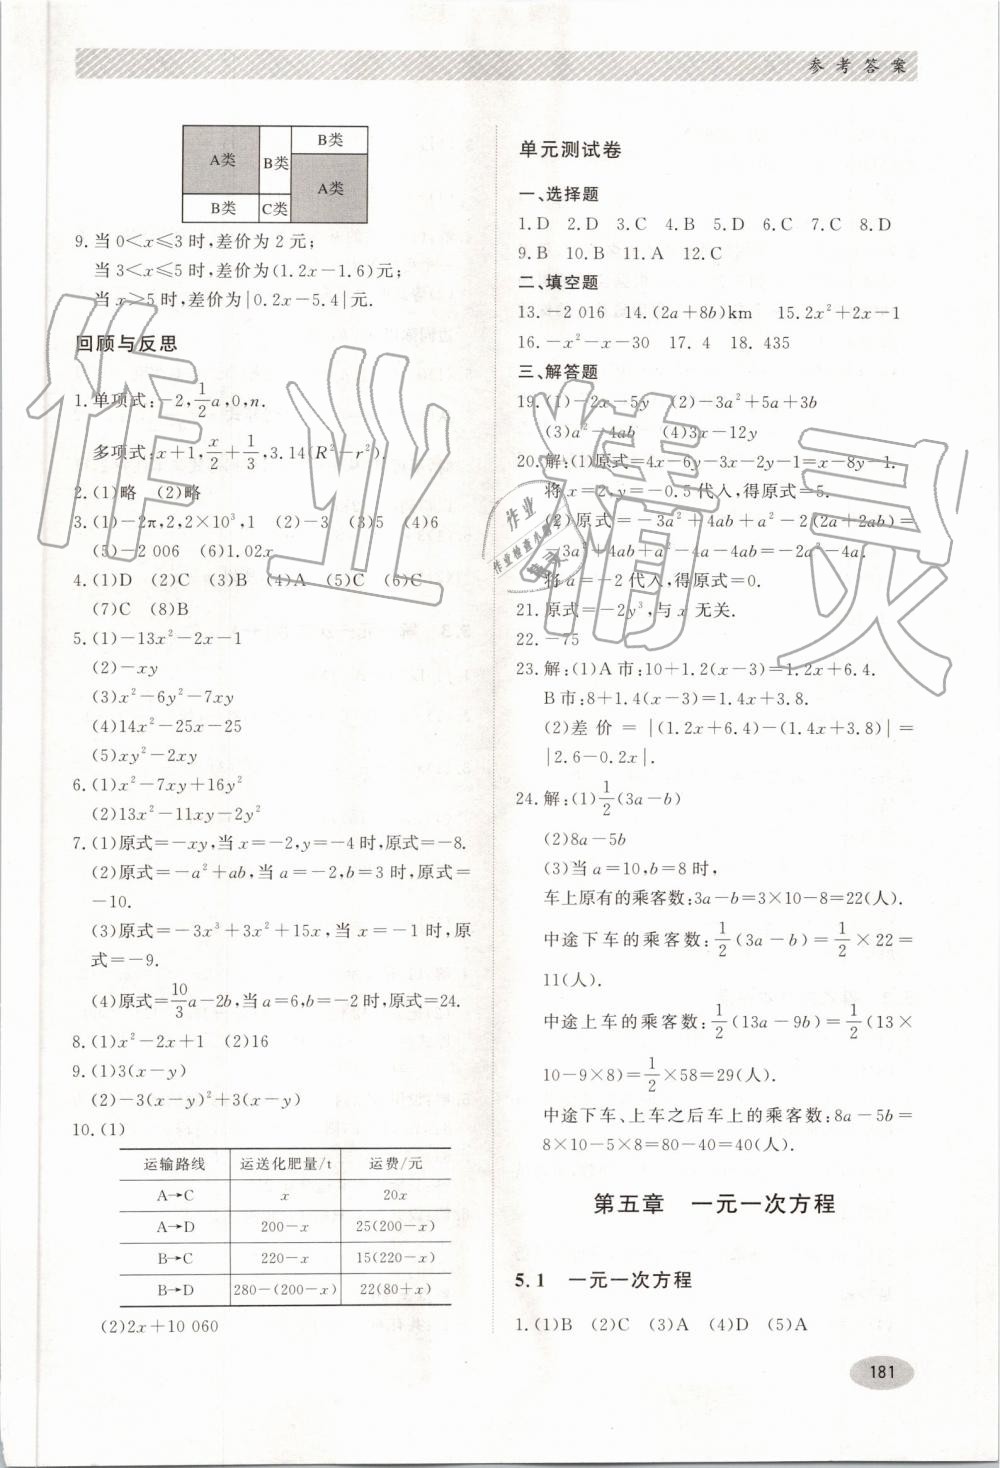 参考答案
B类
A类 B类
A类
B类 C类
9.当0<x≤3时,差价为2元;
当3<x≤5时,差价为(1.2x-1.6)元;
当x>5时,差价为|0.2x-5.4|元.
回顾与反思
1.单项式:-2,1/2a,0,n.
多项式:x+1,x/2+1/3,3.14(R²-r²).
2.(1)略 (2)略
3.(1)-2π,2,2×10³,1 (2)-3 (3)5 (4)6
(5)-2 006 (6)1.02x
4.(1)D (2)C (3)B (4)A (5)C (6)C
(7)C (8)B
5.(1)-13x²-2x-1
(2)-xy
(3)x²-6y²-7xy
(4)14x²-25x-25
(5)xy²-2xy
6.(1)x²-7xy+16y²
(2)13x²-11xy-2y²
7.(1)原式=-xy,当x=-2,y=-4时,原式=-8.
(2)原式=-a²+ab,当a=-2,b=3时,原式=
-10.
(3)原式=-3x³+3x²+15x,当x=-1时,原
式=-9.
(4)原式=10/3a-2b,当a=6,b=-2时,原式=24.
8.(1)x²-2x+1 (2)16
9.(1)3(x-y)
(2)-3(x-y)²+3(x-y)
10.(1)
运输路线 运送化肥量/t 运费/元
A→C x 20x
A→D 200-x 25(200-x)
B→C 220-x 15(220-x)
B→D 280-(200-x) 22(80+x)
(2)2x+10 060
单元测试卷
一、选择题
1.D 2.D 3.C 4.B 5.D 6.C 7.C 8.D
9.B 10.B 11.A 12.C
二、填空题
13.-2 016 14.(2a+8b)km 15.2x²+2x-1
16.-x²-x-30 17.4 18.435
三、解答题
19.(1)-2x-5y (2)-3a²+5a+3b
(3)a²-4ab (4)3x-12y
20.解:(1)原式=4x-6y-3x-2y-1=x-8y-1.
将x=2,y=-0.5代入,得原式=5.
(2)原式=-3a²+4ab+a²-2(2a+2ab)=
-3a²+4ab+a²-4a-4ab=-2a²-4a.
将a=-2代入,得原式=0.
21.原式=-2y³,与x无关.
22.-75
23.解:(1)A市:10+1.2(x-3)=1.2x+6.4.
B市:8+1.4(x-3)=1.4x+3.8.
(2)差价=|(1.2x+6.4)-(1.4x+3.8)|=
|2.6-0.2x|.
24.解:(1)1/2(3a-b)
(2)8a-5b
(3)当a=10,b=8时,
车上原有的乘客数:3a-b=3×10-8=22(人).
中途下车的乘客数:1/2(3a-b)=1/2×22=
11(人).
中途上车的乘客数:1/2(13a-9b)=1/2(13×
10-9×8)=1/2×58=29(人).
中途下车、上车之后车上的乘客数:8a-5b=
8×10-5×8=80-40=40(人).
第五章 一元一次方程
5.1 一元一次方程
1.(1)B (2)C (3)A (4)D (5)A
181
作业精灵